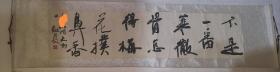 不是
一番
寒徹
骨怎
得梅
花撲
鼻香